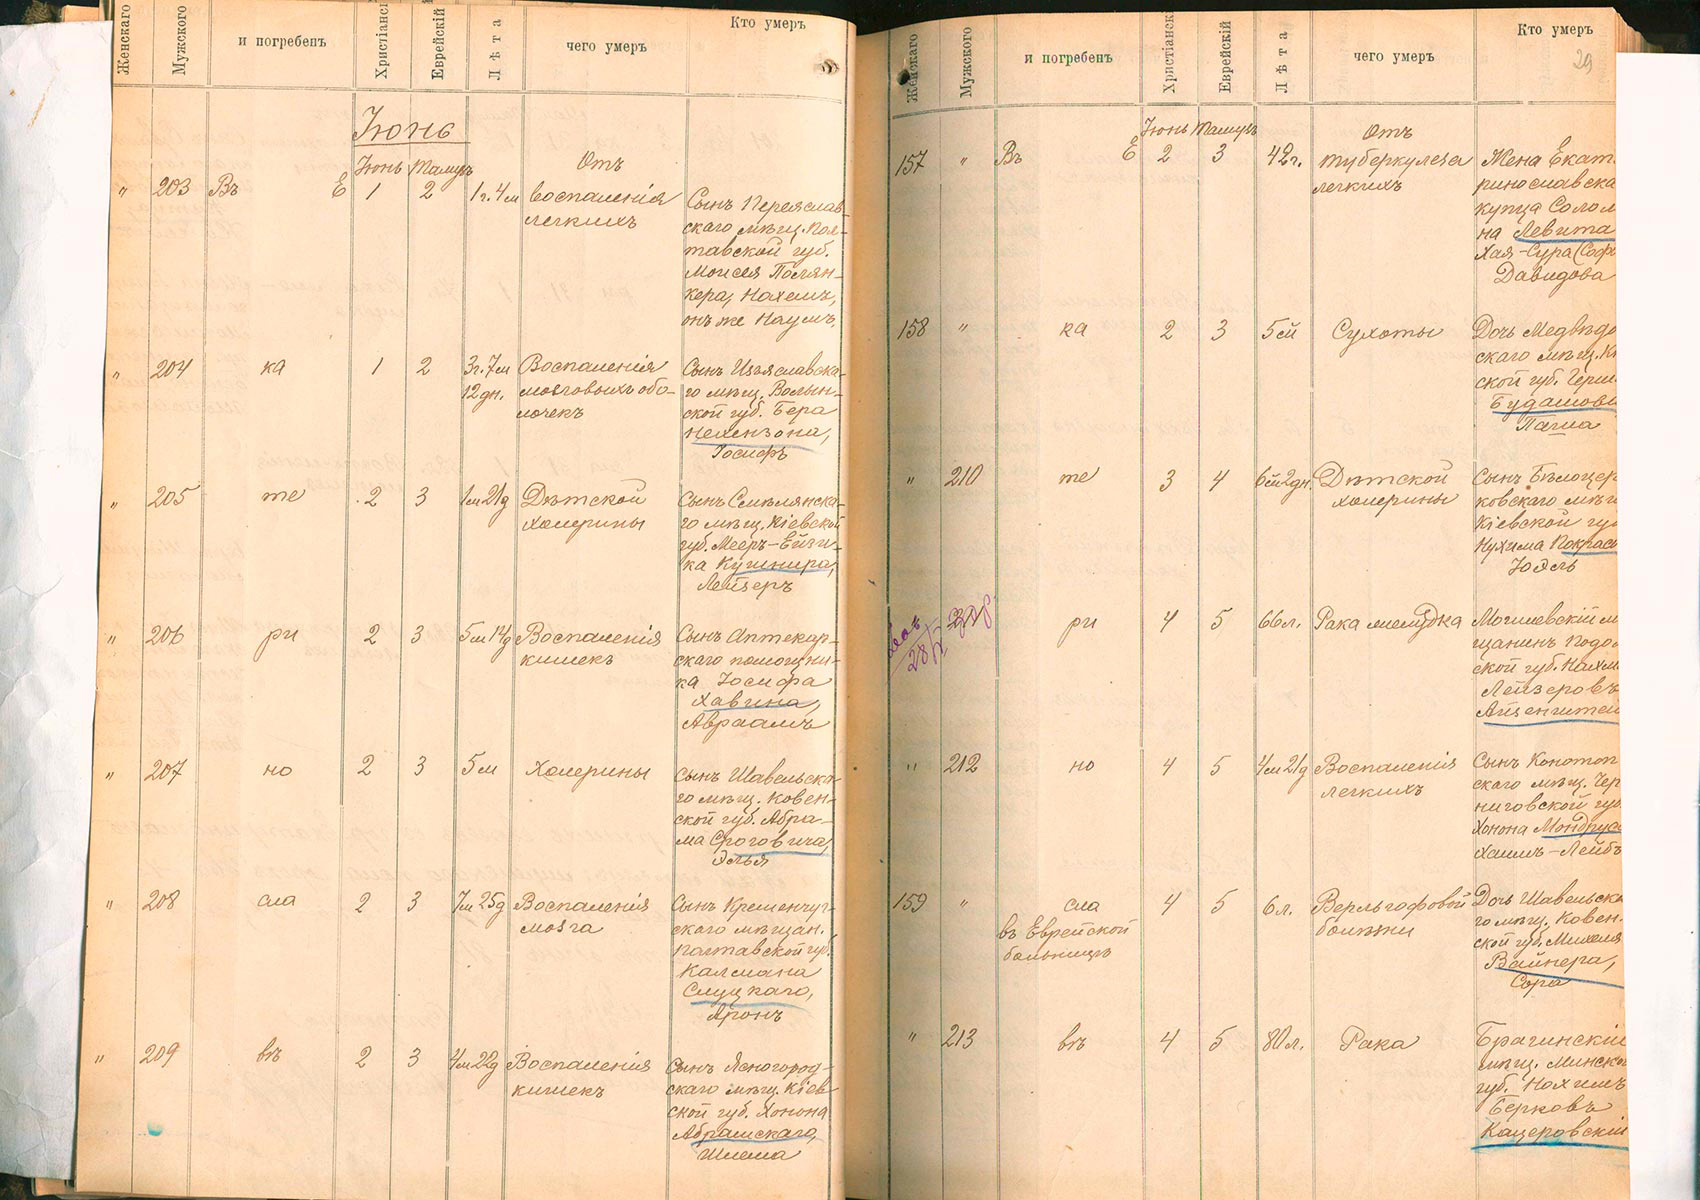 Женскаго Мужскаго и погребенъ Христіанскі Еврейскій Лѣта чего умеръ Кто умеръ
Іюнь
Іюнь Тамузъ Отъ
" 203 Въ Е 1 2 1г. 4м воспаленія
легкихъ
Сынъ Переяслав-
скаго мѣщ. Пол-
тавской губ.
Моисея Полян-
кера, Нахемъ,
онъ же Наумъ.
" 204 ка 1 2 3г. 7м Воспаленія
12 дн. мозговыхъ обо-
лочекъ
Сынъ Изяславска-
го мѣщ. Волын-
ской губ. Бера
Нехензона,
Іосифъ
" 205 те 2 3 1м 21д Дѣтской
холерины
Сынъ Смѣлянска-
го мѣщ. Кіевской
губ. Мееръ-Ейзи-
ка Кушнира,
Лейзеръ
" 206 ри 2 3 5м 14д Воспаленія
кишекъ
Сынъ Аптекар-
скаго помощни-
ка Іосифа
Хавина,
Авраамъ
" 207 но 2 3 5м Холерины
Сынъ Шавельска-
го мѣщ. Ковен-
ской губ. Абра-
ма Сроговича,
Элья
" 208 сла 2 3 7м 25д Воспаленія
мозга
Сынъ Кременчуг-
скаго мѣщан.
Полтавской губ.
Калмана
Слуцкаго,
Аронъ
" 209 въ 2 3 4м 22д Воспаленія
кишекъ
Сынъ Ясногород-
скаго мѣщ. Кіев
ской губ. Хонона
Абрамскаго,
Шлема
Женскаго Мужскаго и погребенъ Христіанскі Еврейскій Лѣта чего умеръ Кто умеръ
29
Іюнь Тамузъ Отъ
157 " Въ Е 2 3 42г. туберкулеза
легкихъ
Жена Екат
ринославска
купца Солом
на Левита
Хая-Сура (Соф
Давидова
158 " ка 2 3 5м Сухоты
Дочь Медвѣдо
скаго мѣщ. К
ской губ. Герш
Будашов
Паша
" 210 те 3 4 6м 2дн. Дѣтской
холерины
Сынъ Бѣлоцер
ковскаго мѣщ
Кіевской гу
Нухима Покрас
Іоэль
28/ ри 4 5 66л. Рака желудка
Могилевскій м
щанинъ Подо
ской губ. Нахм
Лейзеровъ
Айзенштей
" 212 но 4 5 4м 21д Воспаленія
легкихъ
Сынъ Конотоп
скаго мѣщ. Чер
ниговской губ
Хонона Мондрус
Хаимъ-Лейбъ
159 " сла 4 5 6л. Верльгофовой
въ Еврейской болѣзни
больницѣ
Дочь Шавельско
го мѣщ. Ковен-
ской губ. Михеля
Вайнера,
Сора
" 213 въ 4 5 80л. Рака
Брагинскій
мѣщ. Минско
губ. Нохимъ
Берковъ
Кацеровскій